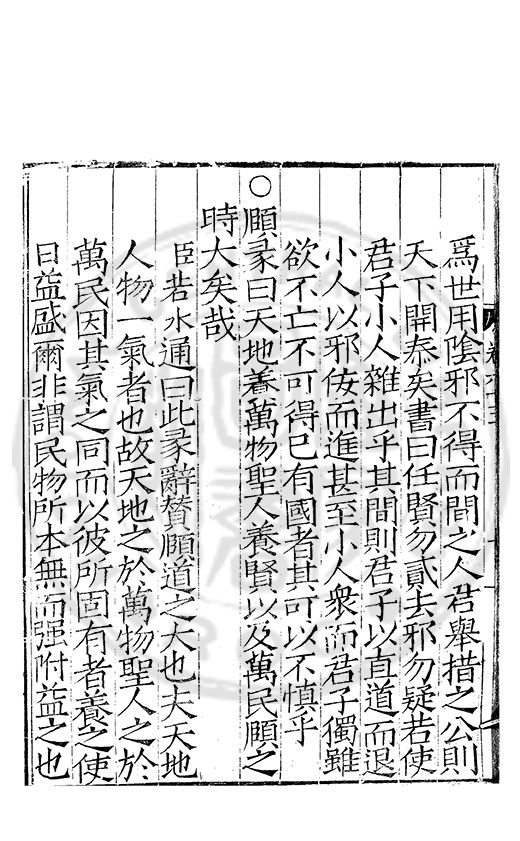 爲世用陰邪不得而間之人君舉措之公則
天下開泰矣書曰任賢勿貳去邪勿疑若使
君子小人雜出乎其間則君子以直道而退
小人以邪佞而進甚至小人衆而君子獨雖
欲不亡不可得已有國者其可以不慎乎
○頤彖曰天地養萬物聖人養賢以及萬民頤之
時大矣哉
臣若水通曰此彖辭贊頤道之大也夫天地
人物一氣者也故天地之於萬物聖人之於
萬民因其氣之同而以彼所固有者養之使
日益盛爾非謂民物所本無而强附益之也